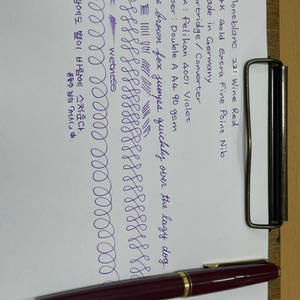 Montblanc 221 Wine Red
14k Gold Extra Fine Point Nib
Made in Germany
Cartridge / Converter
Ink : Pelikan 4001 Violet
Paper : Double A A4 90 gsm
brown fox jumps quickly over the lazy dog
wetness
별이 바람에 스치운다